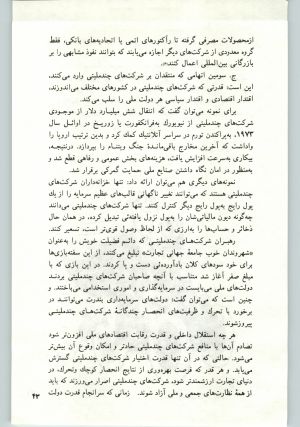 ازمحصولات مصرفی گرفته تا رآکتورهای اتمی یا اتحادیه‌های بانکی، فقط
گروه معدودی از شرکت‌های دیگر اجازه می‌یابند که بتوانند نفوذ مشابهی را بر
بازرگانی بین‌المللی اعمال کنند».
ج. سومین اتهامی که منتقدان بر شرکت‌های چندملیتی وارد می‌کنند،
این است: قدرتی که شرکت‌های چندملیتی در کشورهای مختلف می‌اندوزند،
اقتدار اقتصادی و اقتدار سیاسی هر دولت ملی را سلب می‌کند.
برای نمونه می‌توان گفت که انتقال شش میلیارد دلار از موجودی
شرکت‌های چندملیتی از نیویورک به‌فرانکفورت یا زوریخ در اوائل سال
۱۹۷۳، به‌پراکندن تورم در سراسر آتلانتیک کمک کرد و بدین ترتیب اروپا را
واداشت که آخرین مخارج باقی‌ماندهٔ جنگ ویتنام را بپردازد. درنتیجه،
بیکاری به‌سرعت افزایش یافت، هزینه‌های بخش عمومی و رفاهی قطع شد و
به‌منظور در امان نگاه داشتن صنایع ملی حمایت گمرکی برقرار شد.
نمونه‌های دیگری هم می‌توان ارائه داد: تنها خزانه‌داران شرکت‌های
چندملیتی هستند که می‌توانند تغییر ناگهانی قالب‌های عظیم سرمایه را از یک
پول رایج به‌پول رایج دیگر کنترل کنند. تنها شرکت‌های چندملیتی می‌دانند
چه‌گونه دیون مالیاتی‌شان را به‌پول نزول یافته‌ئی تبدیل کرده، در همان حال
ذخائر و حساب‌ها را به‌ارزی که از لحاظ وصول قوی‌تر است، تسعیر کنند.
رهبران شرکت‌های چندملیتی که دائم فضیلت خویش را به‌عنوان
«شهروندان خوب جامعهٔ جهانی تجارت» تبلیغ می‌کنند، از این سفته‌بازی‌ها
برای خود سودهای کلان بادآورده‌ئی دست و پا کردند. در این بازی که با
مبلغ صفر آغاز شد متناسب با آنچه صاحبان شرکت‌های چندملیتی بردند
دولت‌های ملی می‌بایست در سرمایه‌گذاری و اموری استخدامی می‌باختند.
چنین است که می‌توان گفت: دولت‌های سرمایه‌داری بندرت می‌توانند در
برخورد با تحرک و ظرفیت‌های انحصار چندگانهٔ شرکت‌های چندملیتی
پیروزشوند.
هر چه استقلال داخلی و قدرت رقابت اقتصادهای ملی افزون‌تر شود
تصادم آن‌ها با منافع شرکت‌های چندملیتی حادتر و امکان وقوع آن بیش‌تر
می‌شود. حالتی که در آن تنها قدرت اختیار شرکت‌های چندملیتی گسترش
می‌یابد. و هر قدر که فرصت بهره‌وری از نتایج انحصار کوچک وتحرک، در
دنیای تجارت ارزشمندتر شود، شرکت‌های چندملیتی اصرار می‌ورزند که باید
از همهٔ نظارت‌های جمعی و ملی آزاد شوند. زمانی که سرانجام قدرت دولت
۴۳